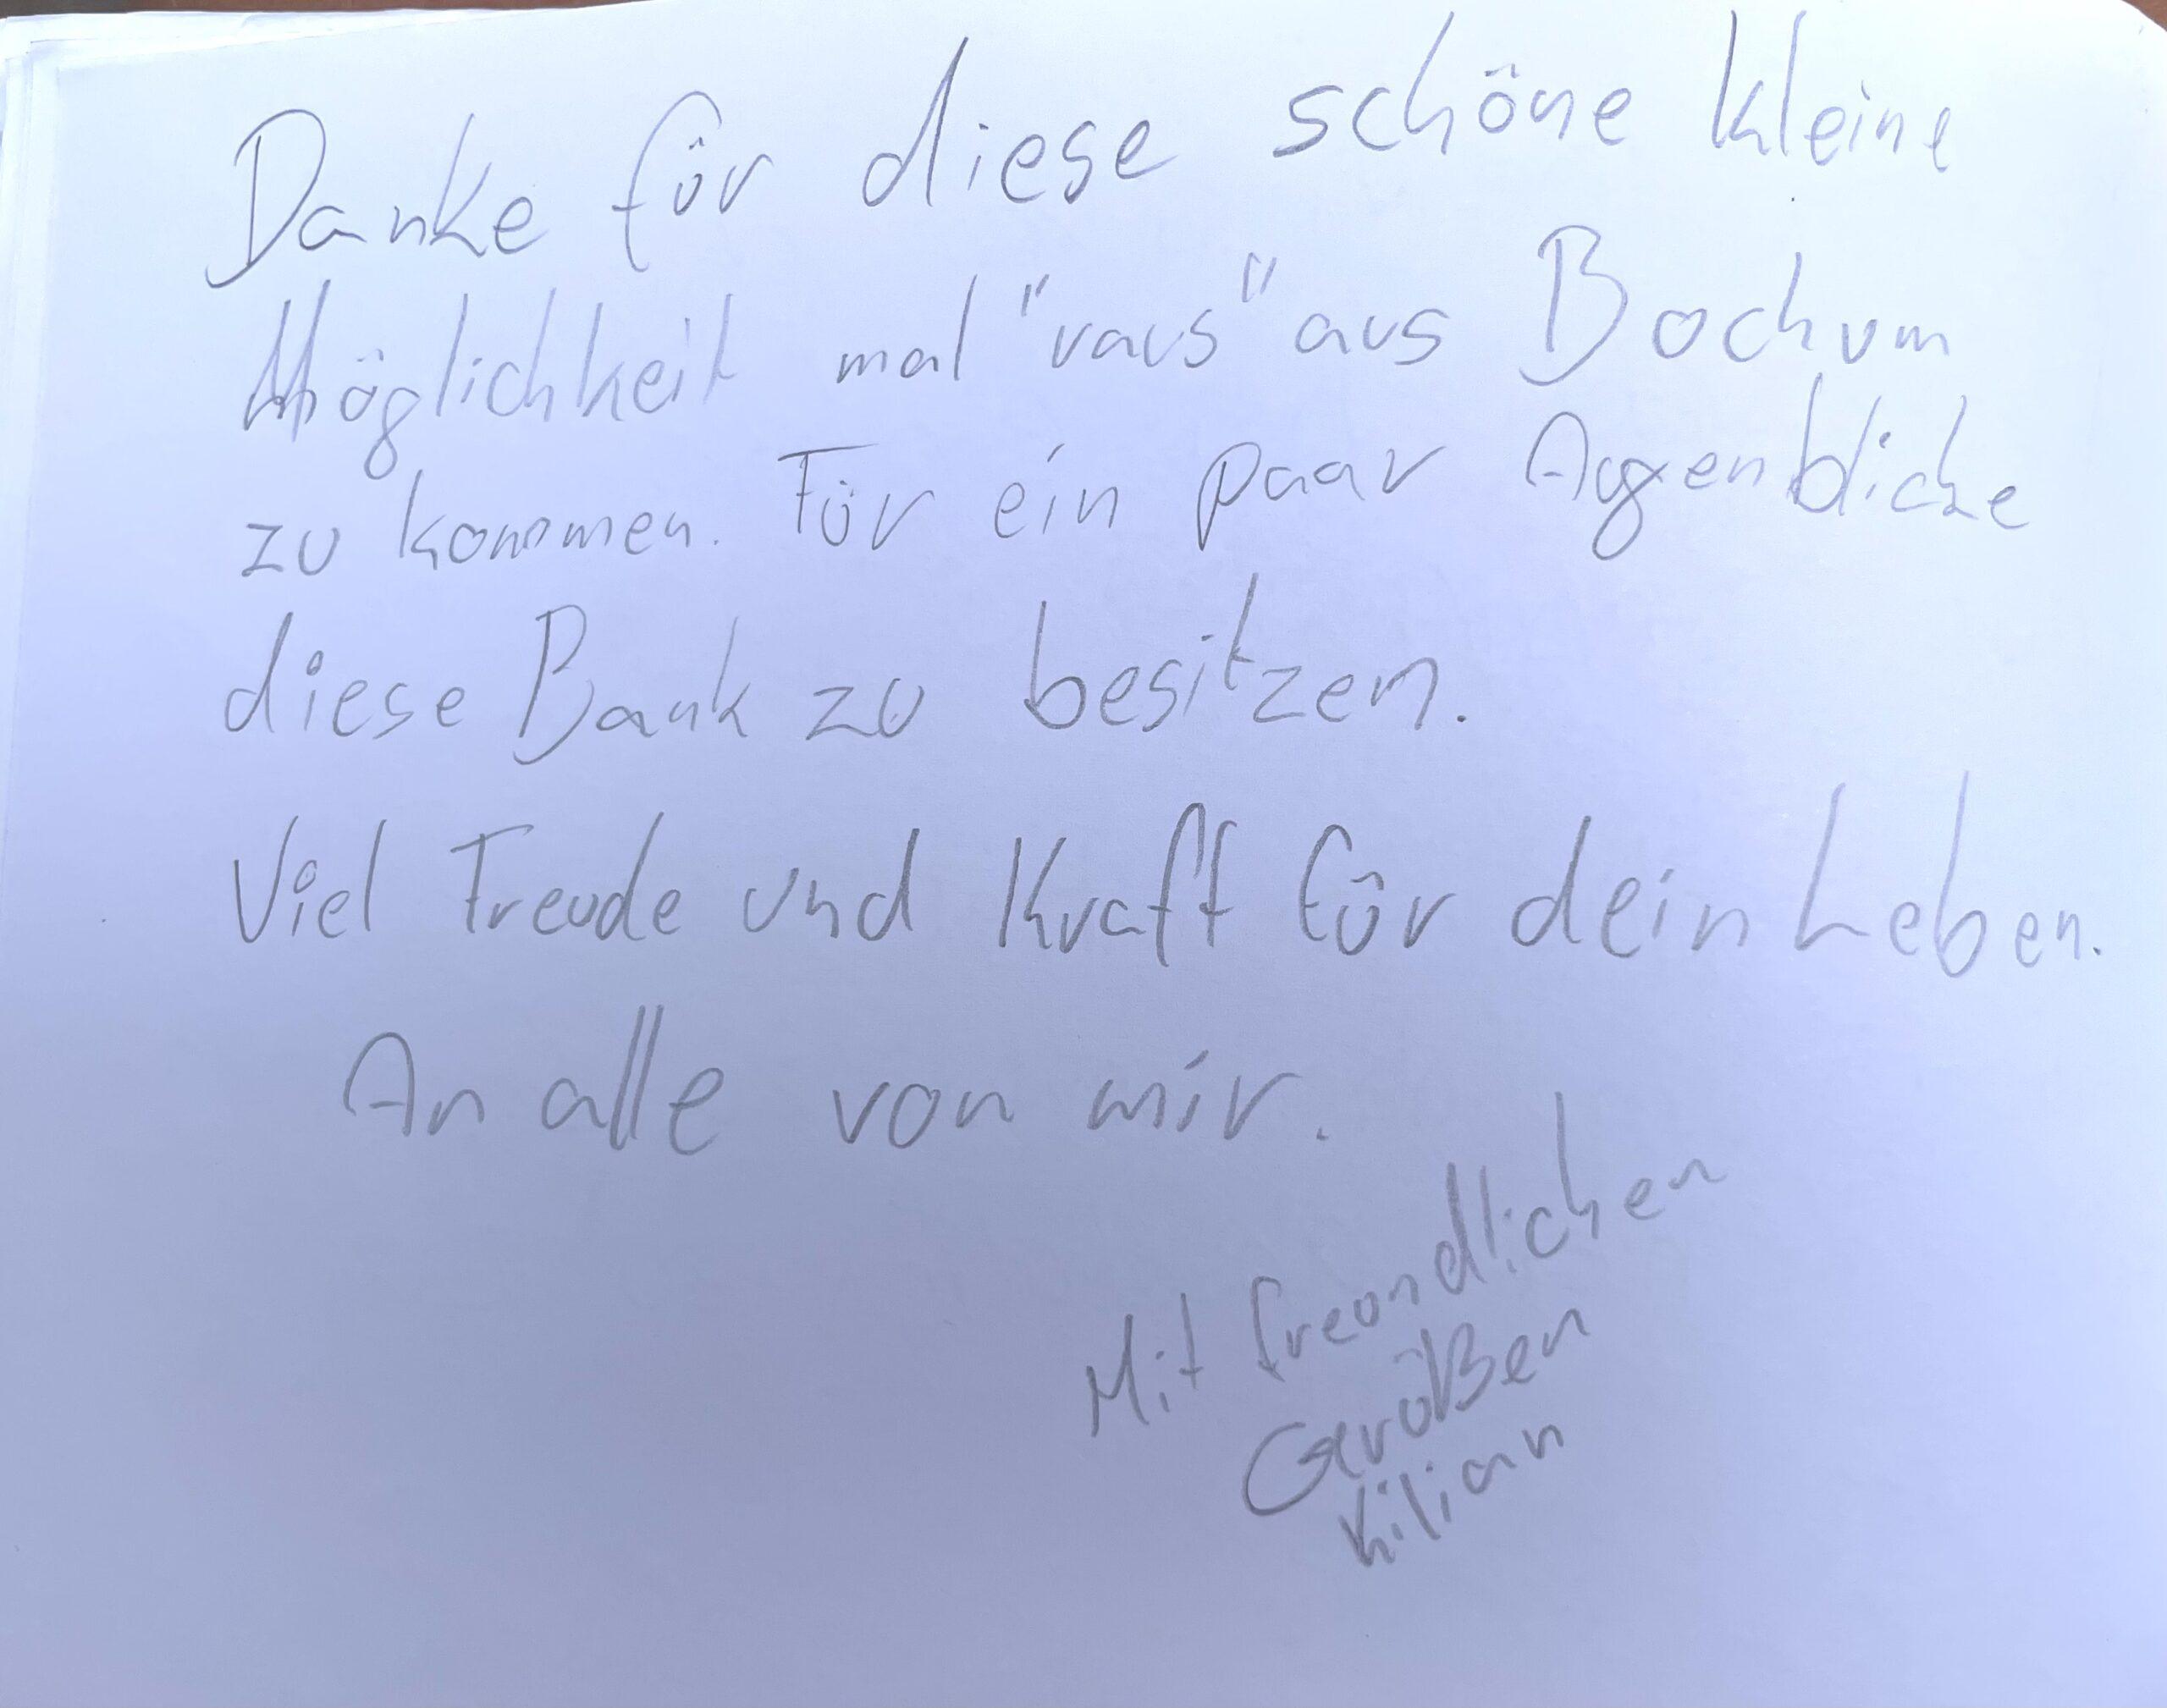 Danke für diese schöne kleine
Möglichkeit mal "raus" aus Bochum
zu kommen. Für ein paar Augenblicke
diese Bank zu besitzen.
Viel Freude und Kraft für dein Leben.
An alle von mir.
Mit freundlichen
Grüßen
Kilian